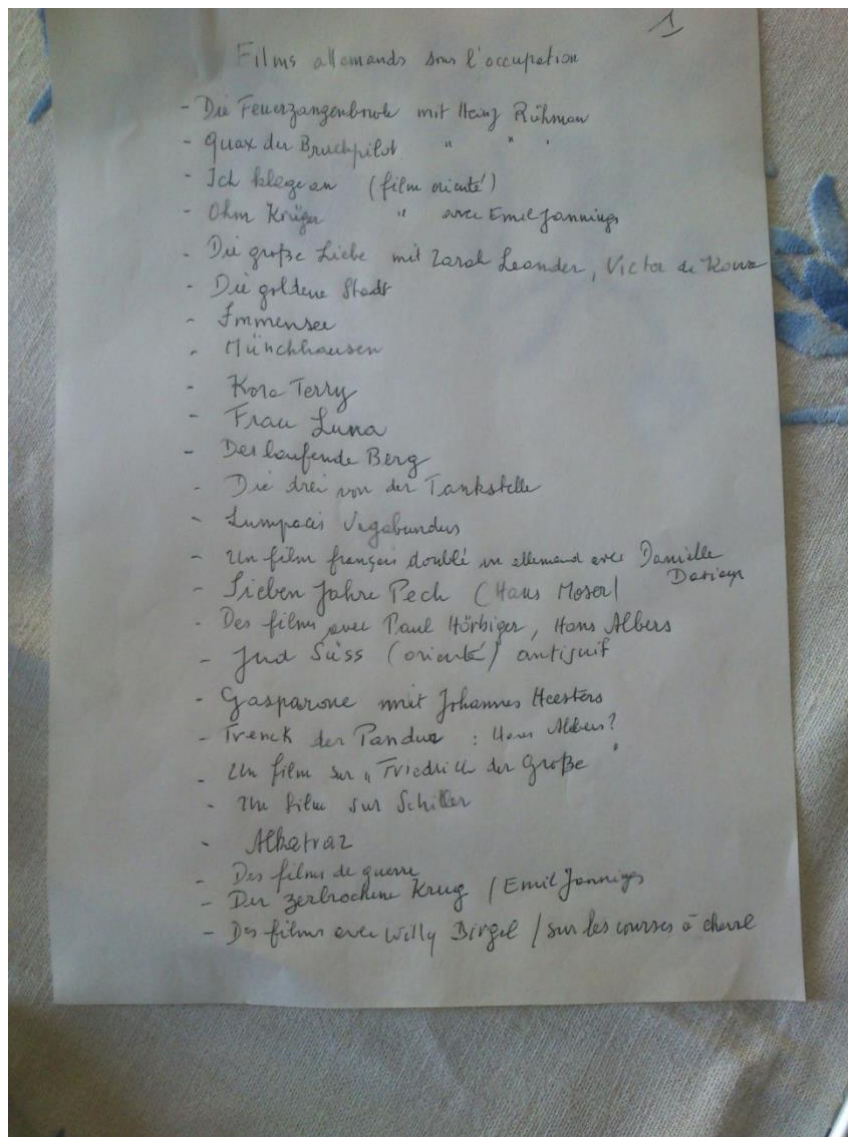 1
Films allemands sous l'occupation
- Die Feuerzangenbowle mit Heinz Rühman
- Quax der Bruchpilot " " "
- Ich klage an (film orienté)
- Ohm Krüger " avec Emil Jannings
- Die große Liebe mit Zarah Leander, Victor de Kowa
- Die goldene Stadt
- Immensee
- Münchhausen
- Kora Terry
- Frau Luna
- Der laufende Berg
- Die drei von der Tankstelle
- Lumpaci Vagabundus
- Un film français doublé en allemand avec Danielle
Darieux
- Sieben Jahre Pech (Hans Moser)
- Des films avec Paul Hörbiger, Hans Albers
- Jud Süss (orienté) antijuif
- Gasparone mit Johannes Heesters
- Trenck der Pandur : Hans Albers?
- Un film sur "Friedrich der Große"
- Un film sur Schiller
- Alkatraz
- Des films de guerre
- Der zerbrochene Krug / Emil Jannigs
- Des films avec Willy Birgel / sur les courses à cheval